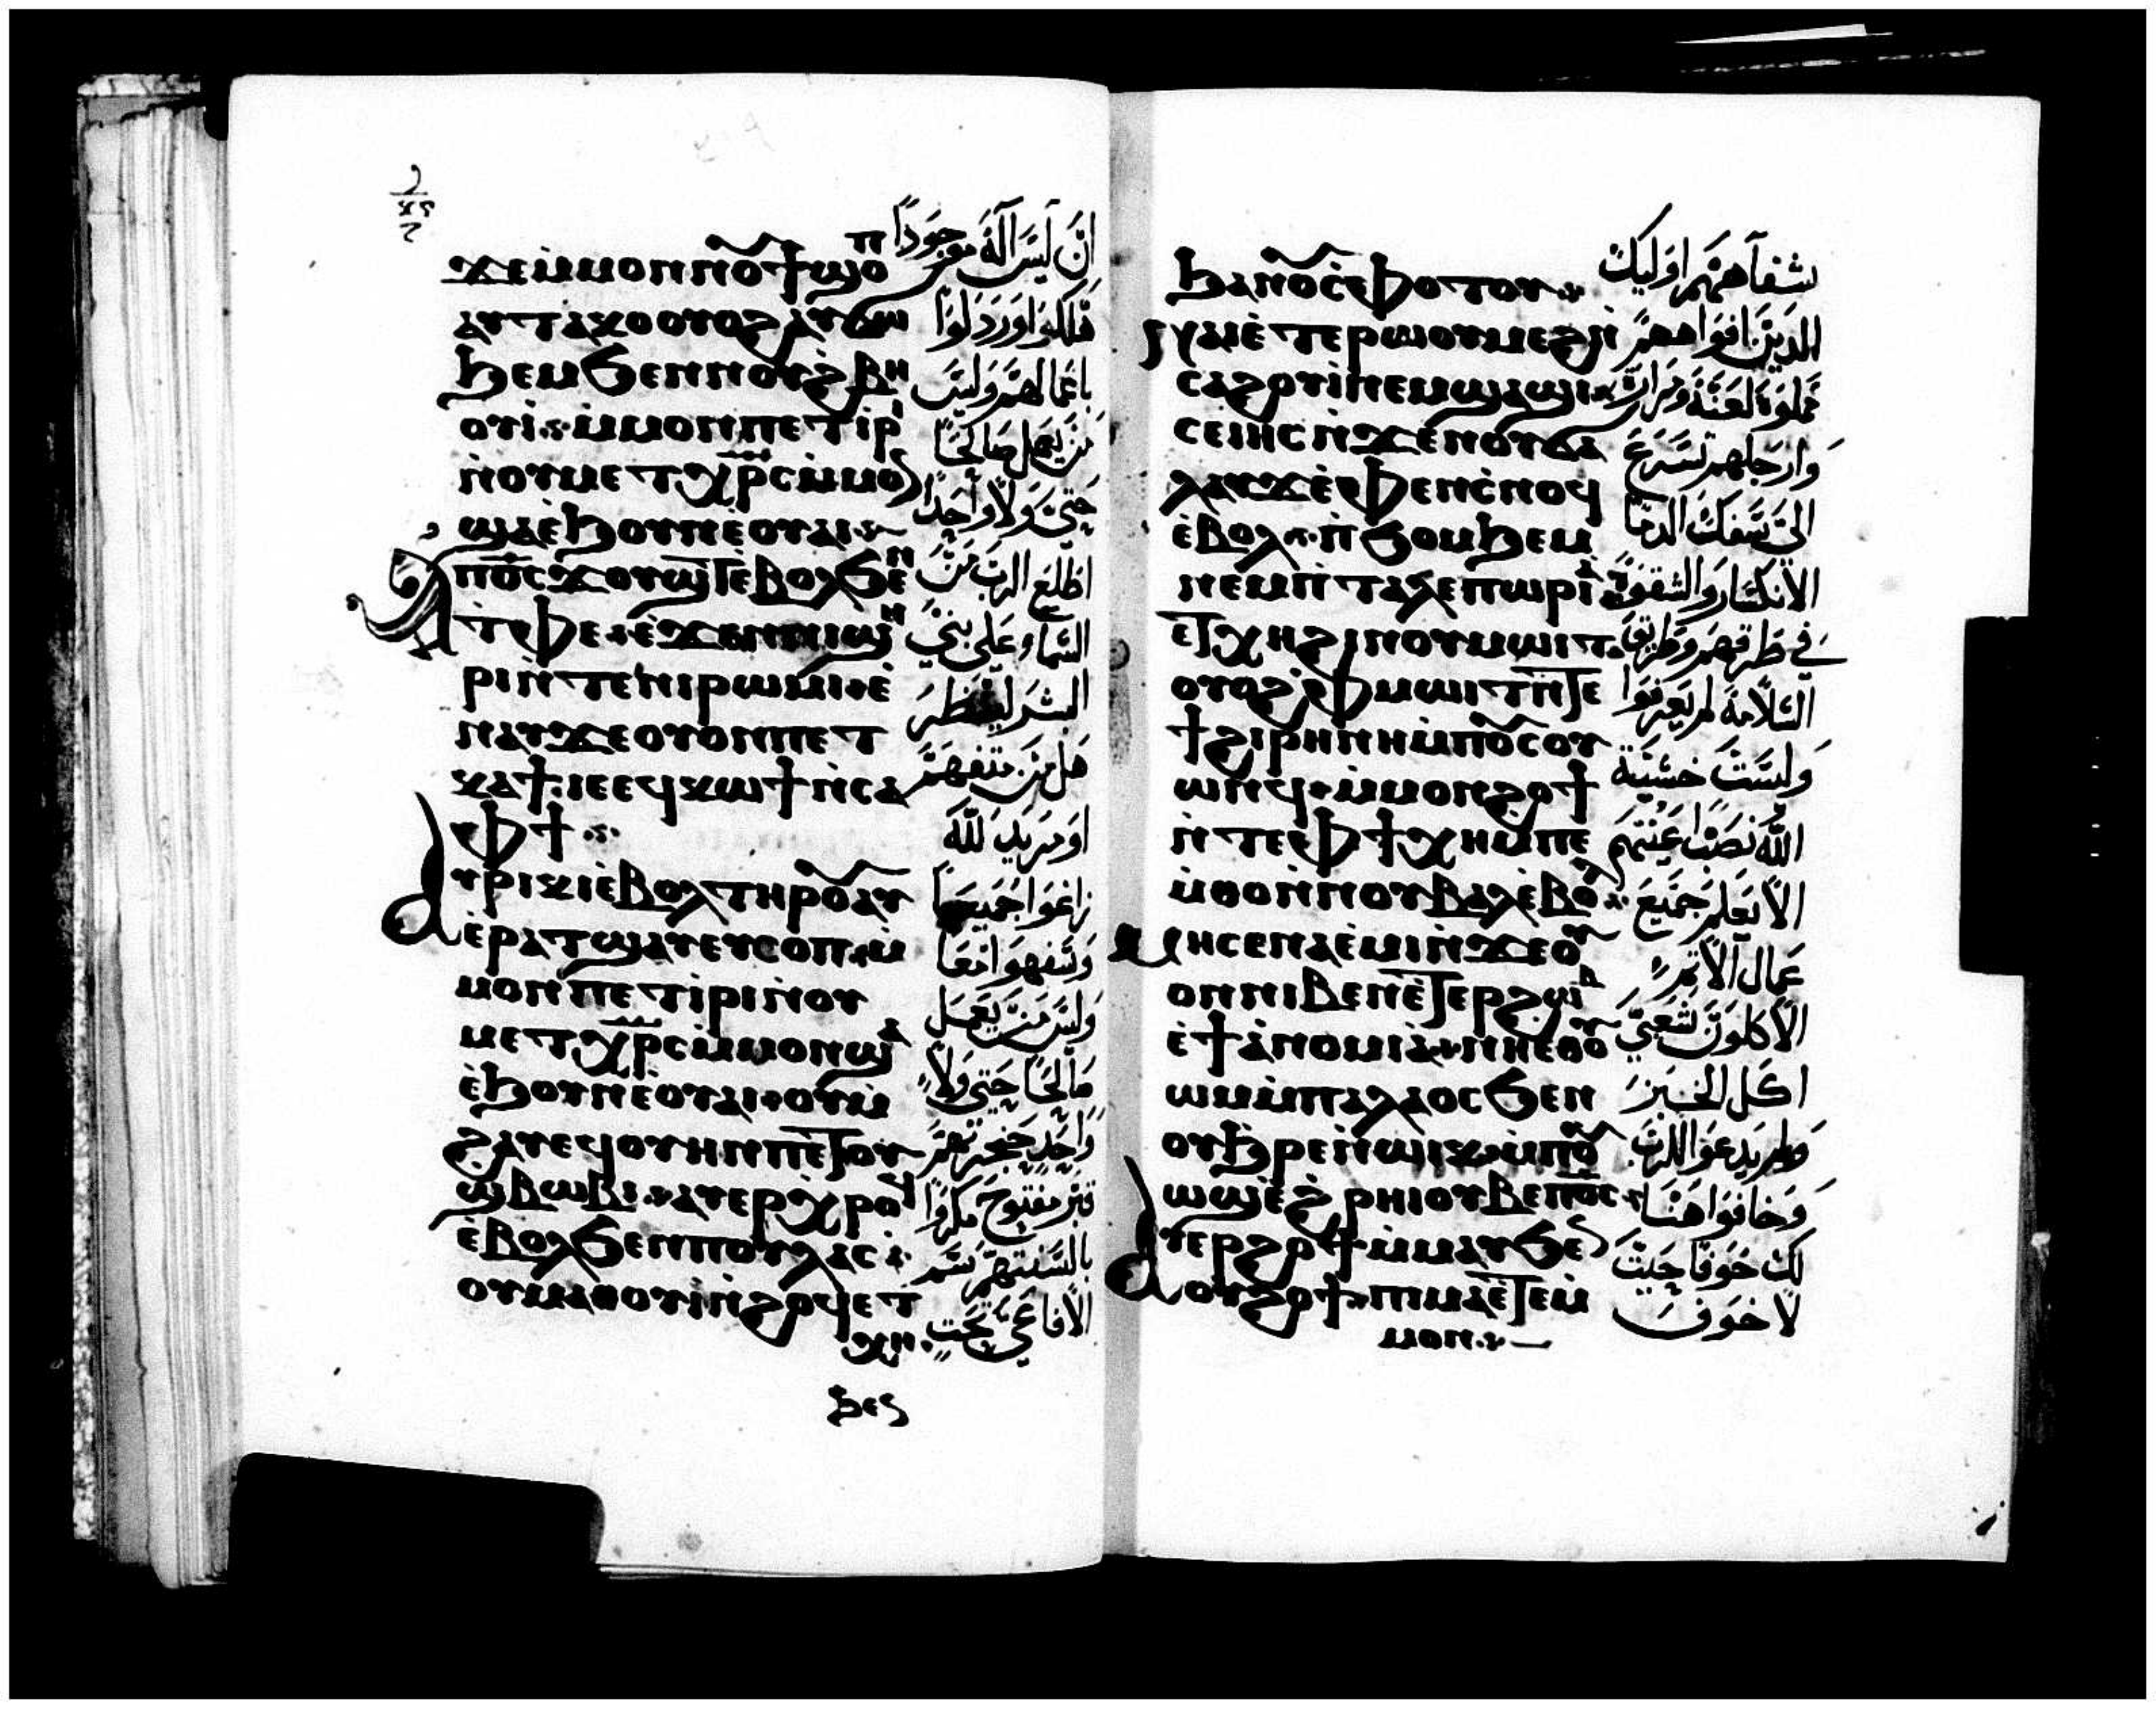 ϫⲉⲙ̇ⲙⲟⲛⲛⲟⲩϯϣⲟⲡ
ⲁⲩⲧⲁⲕⲟⲟⲩⲟϩⲁⲩϭⲱ
ϧⲉⲙϭⲉⲛⲛⲟⲩϩ̇ⲃⲏ
ⲟⲩⲓ̀ ⲙ̇ⲙⲟⲛⲡⲉⲧⲓⲣⲓ
ⲛ̇ⲟⲩⲙⲉⲧⲭ̅ⲣ̅ⲥ̅ⲙ̇ⲙⲟ
ϣⲁⲉ̀ϧⲟⲩⲛⲉ̀ⲟⲩⲁⲓ
ⲁⲡϭⲟⲓⲥϫⲟⲩϣⲧⲉⲃⲟⲗϭⲉⲛ
ⲧ̇ⲫⲉ ⲉ̀ϫⲉⲛⲛⲓϣⲏ
ⲣⲓⲛ̇ⲧⲉⲛⲓⲣⲱⲙⲓ ⲉ̀
ⲛⲁⲩϫⲉⲟⲩⲟⲛⲡⲉⲧ
ⲕⲁϯ ⲓⲉⲉϥⲕⲱϯⲛ̇ⲥⲁ
ⲫϯ
ⲁⲩⲣⲓⲕⲓⲉⲃⲟⲗⲧⲏⲣⲟⲩⲁⲩ
ⲉ̀ⲣⲁⲧϣⲁⲩⲉⲩⲥⲟⲡ ⲙ̇
ⲙⲟⲛⲡⲉⲧⲓⲣⲓⲛ̇ⲟⲩ
ⲙⲉⲧⲭ̅ⲣ̅ⲥ̅ⲙ̇ⲙⲟⲛϣⲁ
ⲉ̀ϧⲟⲩⲛⲉ̀ⲟⲩⲁⲓ ⲟⲩⲙ̇
ϩⲁⲩⲉϥⲟⲩⲏⲛⲡⲉⲧⲟⲩ
ϣⲃⲱⲃⲓ ⲁⲩⲉⲣⲭⲣⲟϥ
ⲉ̀ⲃⲟⲗϭⲉⲛⲡⲟⲩⲗⲁⲥ
ⲟⲩⲙⲁⲑⲟⲩⲓ̀ⲛ̇ϩⲟϥⲉⲧ
ⲭⲏ
ϧⲉⲛ
ان ليس اله موجودا
فهلكوا وردلوا
باعمالهم وليس
من يعمل صالحا
حتى ولا واحدا
اطلع الرب من
السماء على بني
البشر لينظر
هل من متفهم
او مريد لله
زاغوا جميعا
وسفهوا معا
وليس من يعمل
صالحا حتى ولا
واحد حنجرتهم
قبر مفتوح مكروا
بالسنتهم سم
الافاعي تحت
ϧⲁⲛⲟⲩⲥ̇ⲫⲟⲧⲟⲩ
ⲛⲏⲉ̀ⲧⲉⲣⲱⲟⲩⲙⲉϩⲛ̇
ⲥⲁϩⲟⲩⲓ̀ⲛⲉⲙϣⲁϣⲓ
ⲥⲉⲓⲏⲥⲛ̇ϫⲉⲛⲟⲩϭⲁ
ⲗⲁⲩϫⲉ̀ⲫⲉⲛⲥ̇ⲛⲟϥ
ⲉ̀ⲃⲟⲗ ⲡ̇ϭⲟⲙϧⲉⲙ
ⲛⲉⲙⲡ̇ⲧⲁⲗⲉⲡⲱⲣⲓⲁ
ⲉⲧⲭⲏϩⲓⲛⲟⲩⲙⲱⲓⲧ
ⲟⲩⲟϩⲫⲙⲱⲓⲧⲛ̇ⲧⲉ
ϯϩⲓⲣⲏⲛⲏⲙ̇ⲡⲟⲩⲥⲟⲩ
ⲱⲛϥ ⲙ̇ⲙⲟⲛϩⲟϯ
ⲛ̇ⲧⲉⲫϯⲭⲏⲙ̇ⲡⲉ
ⲙ̇ⲑⲟⲛ̇ⲛⲟⲩⲃⲁⲗⲉ̀ⲃⲟⲗ
ⲙⲏⲥⲉⲛⲁⲉ̀ⲙⲓⲛ̇ϫⲉⲟⲩ
ⲟⲛⲛⲓⲃⲉⲛⲉ̀ⲧⲉⲣϩⲱⲃ
ⲉ̀ϯⲁ̀ⲛⲟⲙⲓⲁ̀ ⲛⲏⲉⲑⲟⲩ
ⲱⲙⲙ̇ⲡⲁⲗⲁⲟⲥϭⲉⲛ
ⲟⲩϧⲣⲉⲛ̇ⲱⲓⲕ ⲙ̇ⲡⲟⲩ
ⲱϣⲉ̀ϩ̇ⲣⲏⲓⲟⲩⲃⲉⲡϭⲟⲓⲥ
ⲁⲩⲉⲣϩⲟϯⲙ̇ⲙⲁⲩϭⲉⲛ
ⲟⲩϩⲟϯ ⲡⲓⲙⲁⲉ̀ⲧⲉⲙ̇
ⲙⲟⲛ
شفاههم اوليك
الذين افواههم
مملوة لعنة ومرارة
وارجلهم تسرع
الى سفك الدما
الانكسار والشقوة
في طرقهم وطريق
السلامة لم يعرفوا
وليست خشية
الله نصب اعينهم
الا يعلم جميع
عمال الاثم
الاكلون شعبي
اكل الخبز
ولم يدعوا للرب
وخافوا هنا
لك خوفا حيث
لا خوف